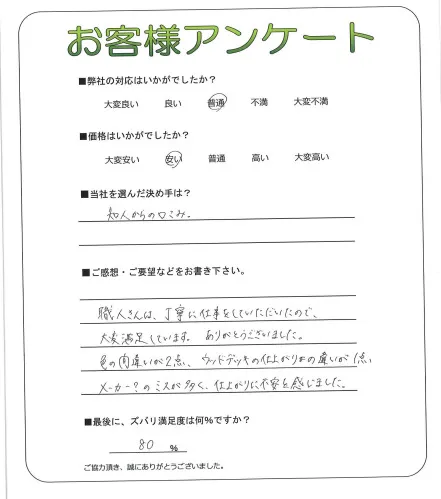 お客様アンケート
■弊社の対応はいかがでしたか？
大変良い 良い 普通 不満 大変不満
■価格はいかがでしたか？
大変安い 安い 普通 高い 大変高い
■当社を選んだ決め手は？
知人からの口こみ。
■ご感想・ご要望などをお書き下さい。
職人さんは、丁寧に仕事をしていただいたので、
大変満足しています。 ありがとうございました。
色の間違いが2点、ウッドデッキの仕上がり の違いが1点、
メーカー?のミスが多く、仕上がりに不安を感じました。
■最後に、ズバリ満足度は何%ですか？
80 %
ご協力頂き、誠にありがとうございました。